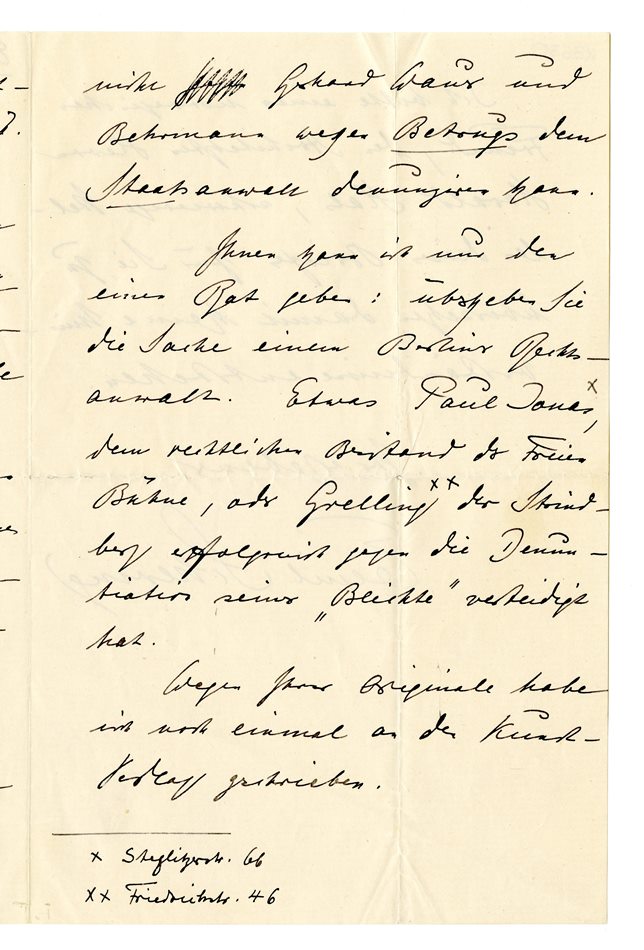 nicht Gerhard Waur und
Behrmann wegen Betrugs dem
Staatsanwalt denunziren kann.
Ihnen kann ich nur den
einen Rat geben: übergeben Sie
die Sache einem Berliner Rechts-
anwalt. Etwas Paul Jonas x,
dem rechtlichen Beistand der Freien
Bühne, oder Grelling xx, der Strind-
berg erfolgreich gegen die Denun-
tiation seiner „Beichte" verteidigt
hat.
Wegen Ihrer Originale habe
ich noch einmal an den Kunst-
Verlag geschrieben.
x Steglitzerstr. 66
xx Friedrichstr. 46